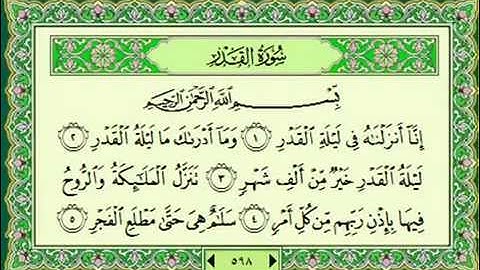 سُورَةُ القَدْرِ
بِسْمِ اللَّهِ الرَّحْمَٰنِ الرَّحِيمِ
إِنَّآ أَنزَلْنَٰهُ فِى لَيْلَةِ ٱلْقَدْرِ ١ وَمَآ أَدْرَىٰكَ مَا لَيْلَةُ ٱلْقَدْرِ ٢
لَيْلَةُ ٱلْقَدْرِ خَيْرٌ مِّنْ أَلْفِ شَهْرٍ ٣ تَنَزَّلُ ٱلْمَلَٰٓئِكَةُ وَٱلرُّوحُ
فِيهَا بِإِذْنِ رَبِّهِم مِّن كُلِّ أَمْرٍ ٤ سَلَٰمٌ هِىَ حَتَّىٰ مَطْلَعِ ٱلْفَجْرِ ٥
٥٩٨